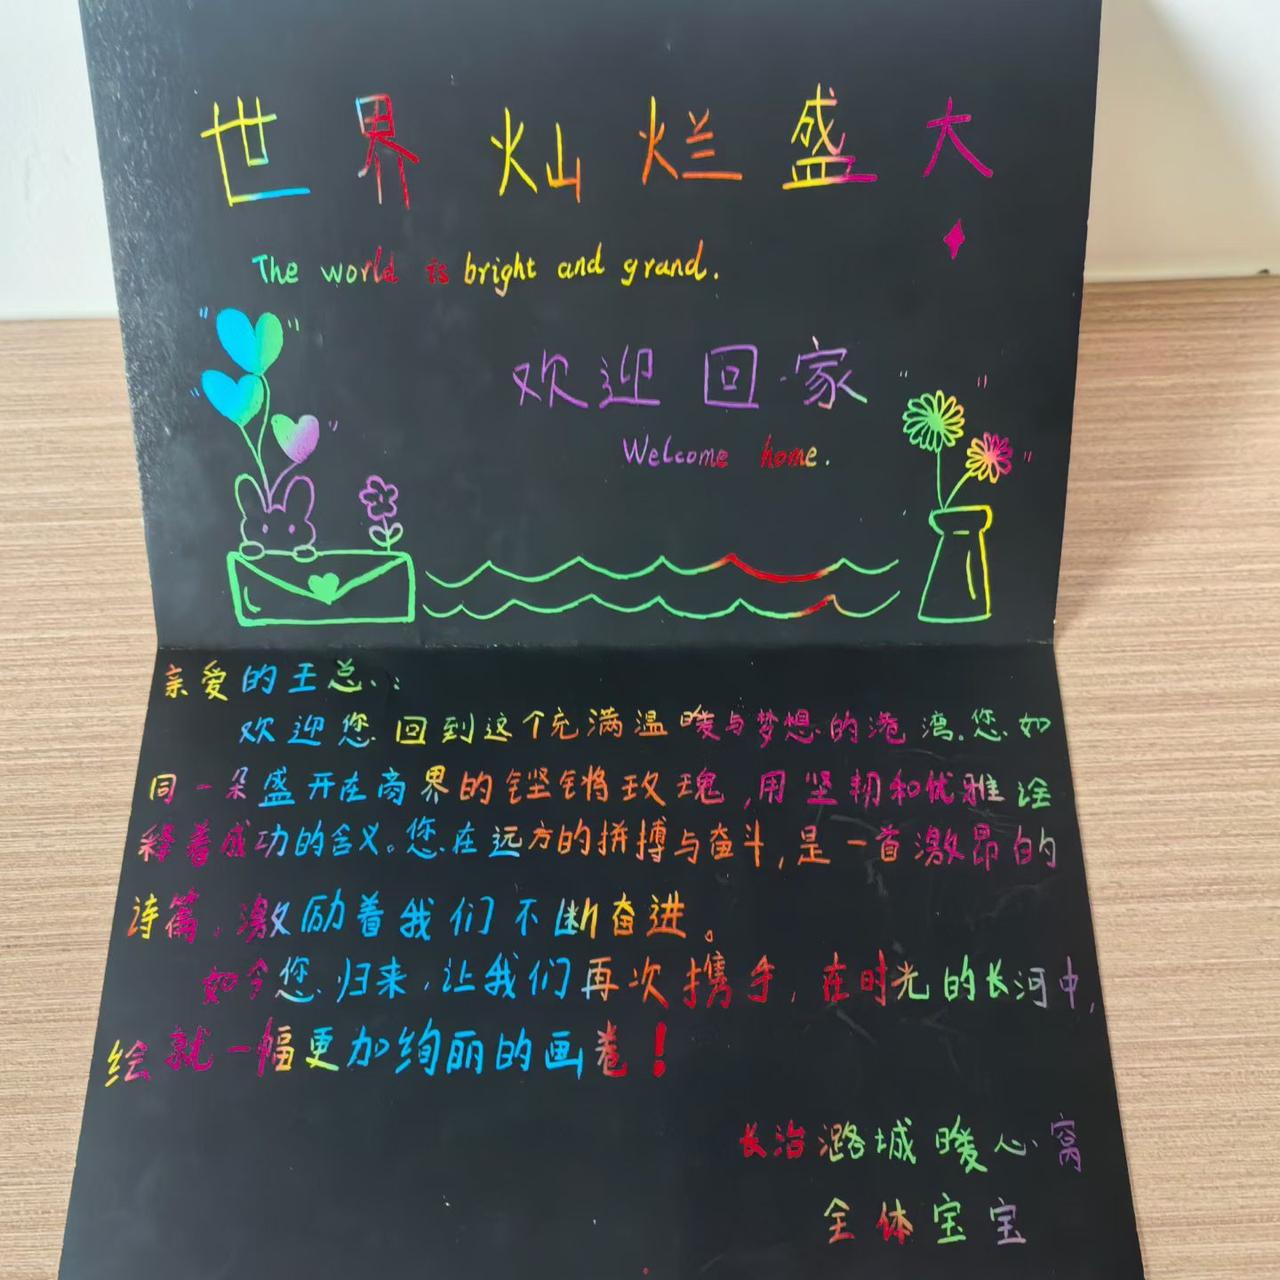 世界灿烂盛大
The world is bright and grand.
欢迎回家
Welcome home.
亲爱的王总：
欢迎您回到这个充满温暖与梦想的港湾。您如
同一朵盛开在商界的铿锵玫瑰，用坚韧和优雅诠
释着成功的含义。您在远方的拼搏与奋斗，是一首激昂的
诗篇，激励着我们不断奋进。
如今您归来，让我们再次携手，在时光的长河中，
绘就一幅更加绚丽的画卷！
长治潞城暖心窝
全体宝宝